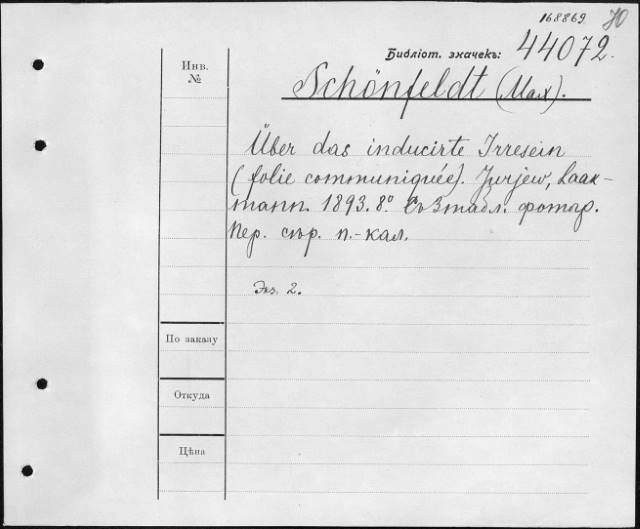 168869 70
Инв.
№
Библіот. значекъ: 44072.
Schönfeldt (Max).
Über das inducirte Irresein
(folie communiquée). Jurjew, Laak-
mann. 1893. 8º. Съ 3 табл. фотогр.
Пер. сѣр. п.-кал.
Экз. 2.
По заказу
Откуда
Цѣна